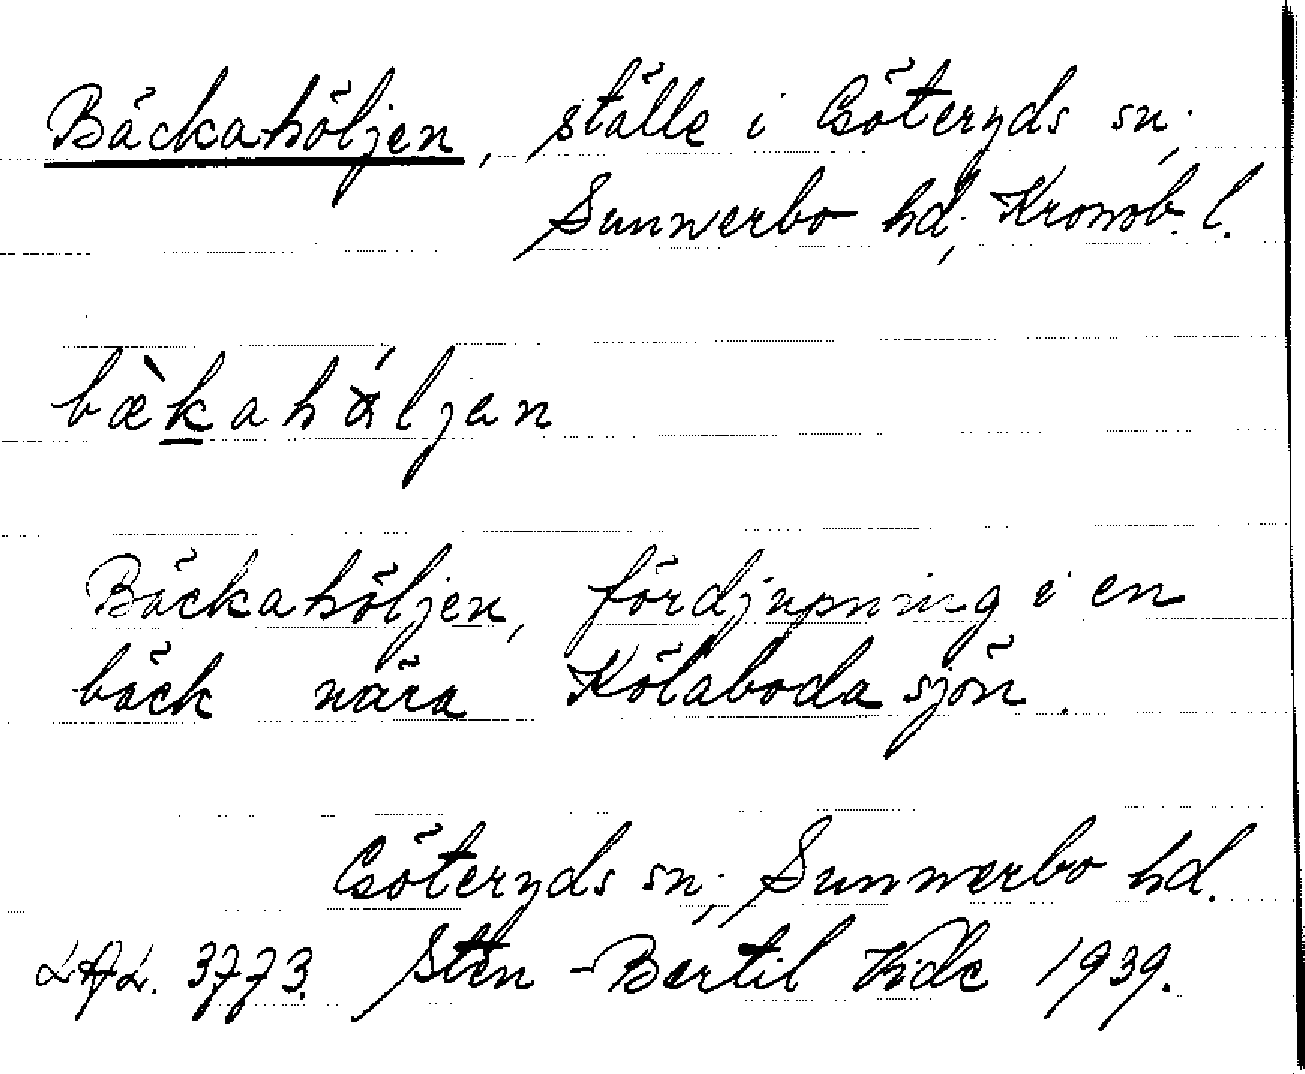 Bäckahöljen, ställe i Göteryds sn,
Sunnerbo hd, Kronob. l.
bækahäljen
Bäckahöljen, fördjupning i en
bäck nära Kölaboda sjön.
Göteryds sn, Sunnerbo hd.
LAL. 3773. Sten-Bertil Vide 1939.